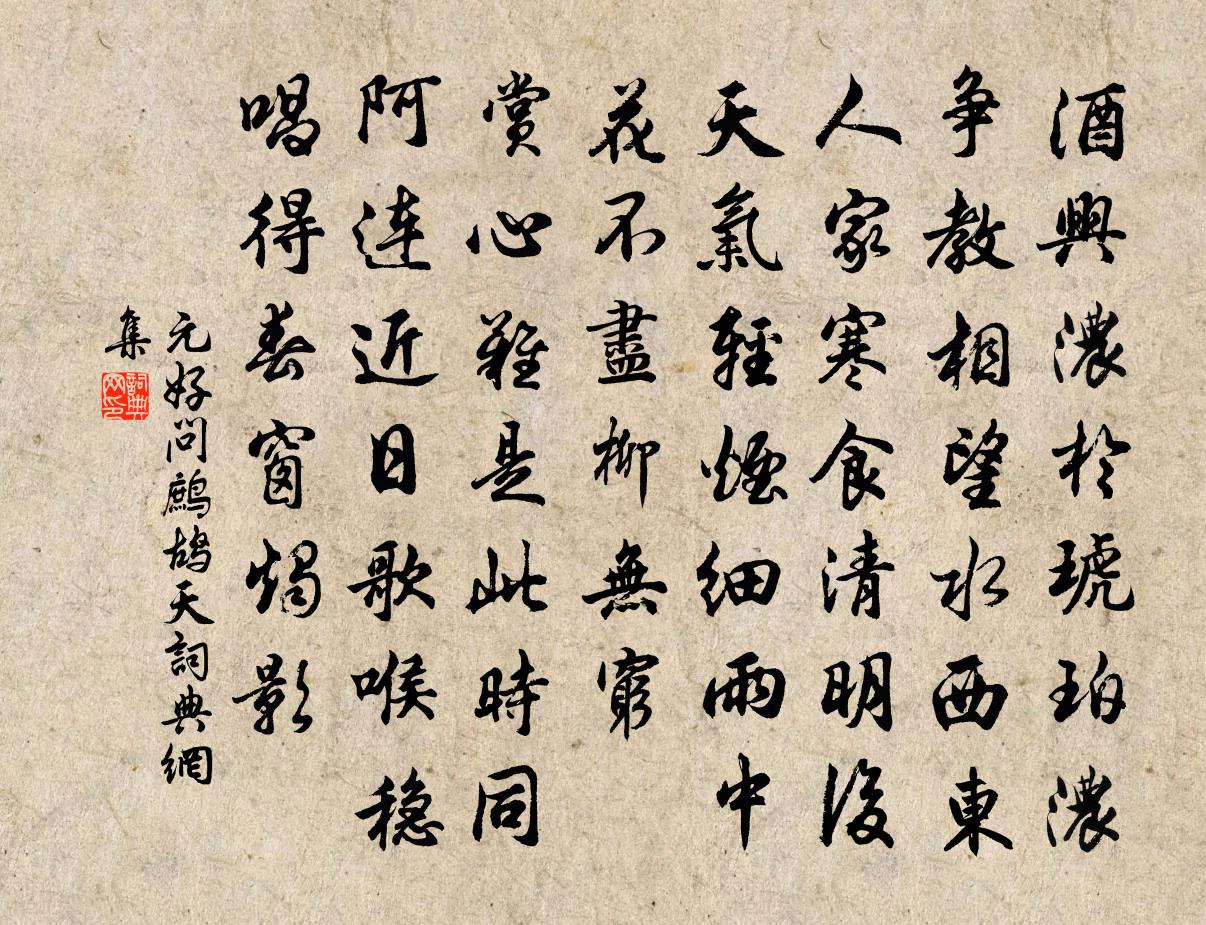 酒興濃於琥珀濃
争教相望水西東
人家寒食清明後
天氣輕煙細雨中
花不盡柳無窮
賞心難是此時同
阿連近日歌喉穏
唱得春窗燭影
元好问鷓鴣天詞典網
集
詞典
网印